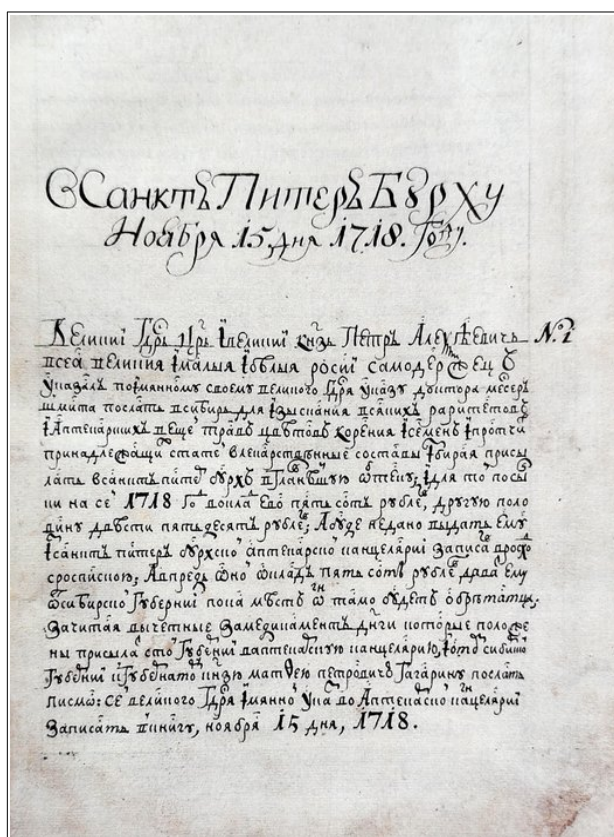 В Санктъ Питеръ Бурху
Ноября 15 дня 1718. Году.
Великиі Гдрь Црь іВеликиі кнзь Петръ Алеѯѣевичъ №. 1
всеа великия імалыя ібѣлыя росиі самодержецъ
указалъ поімянному своему великого Гдря указу доктора месеръ
шмита послать всибирь для ізыскания всякихъ раритетовъ
іАптекарскихъ вещеи травъ цвѣтовъ корения ісеменъ іпротчи
принадлежащи стате влекарственные составы ібирая присы
лать всанктъ питеръ бурхъ вГлавнѣшую ѿптеку; ідля то посы
ки на се 1718 Го довола ево пять сотъ рублеі, другую поло
вину двѣсти пятьдесятъ рублеі; Абуде недано выдать ему
ісанктъ питеръ бурхскоі аптекарскоі канцеляриі записа врохо
сроспискою; Авпредь ѡкоі ѡкладъ пять сотъ рублеі дава ему
ѿсибирскоі Губерниі пока мѣстъ ѡ тамо будетъ обрѣтатца.
Зачитая вычетные Замедикаментъ днги которые положе
ны присыла сто Губерниі ваптекарскую канцелярию,
Губерниі кГубернато кнзю матѳею петровичъ Гагарину послать
писмо: се великого Гдря імянно ука во Аптекарскоі канцеляриі
Записать вкнигу, ноября 15 дня, 1718.